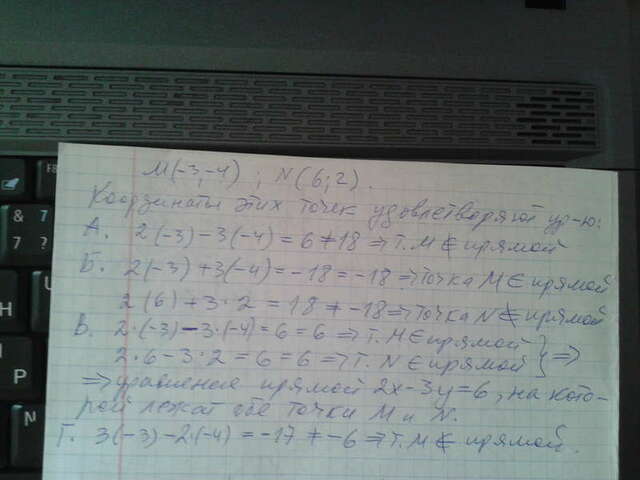 M(-3,-4) ; N(6;2).
Координаты этих точек удовлетворяют ур-ю:
А. 2(-3)-3(-4)=6≠18 ⇒ т. M ∉ прямой
Б. 2(-3)+3(-4)=-18=-18 ⇒ точка M ∈ прямой
2(6)+3·2=18≠-18 ⇒ точка N ∉ прямой
В. 2·(-3)-3·(-4)=6=6 ⇒ т. M ∈ прямой
2·6-3·2=6=6 ⇒ т. N ∈ прямой } ⇒
⇒ уравнение прямой 2x-3y=6, на кото-
рой лежат обе точки M и N.
Г. 3(-3)-2·(-4)=-17≠-6 ⇒ т. M ∉ прямой.
&
7
7
?
H
U
P
N
F8